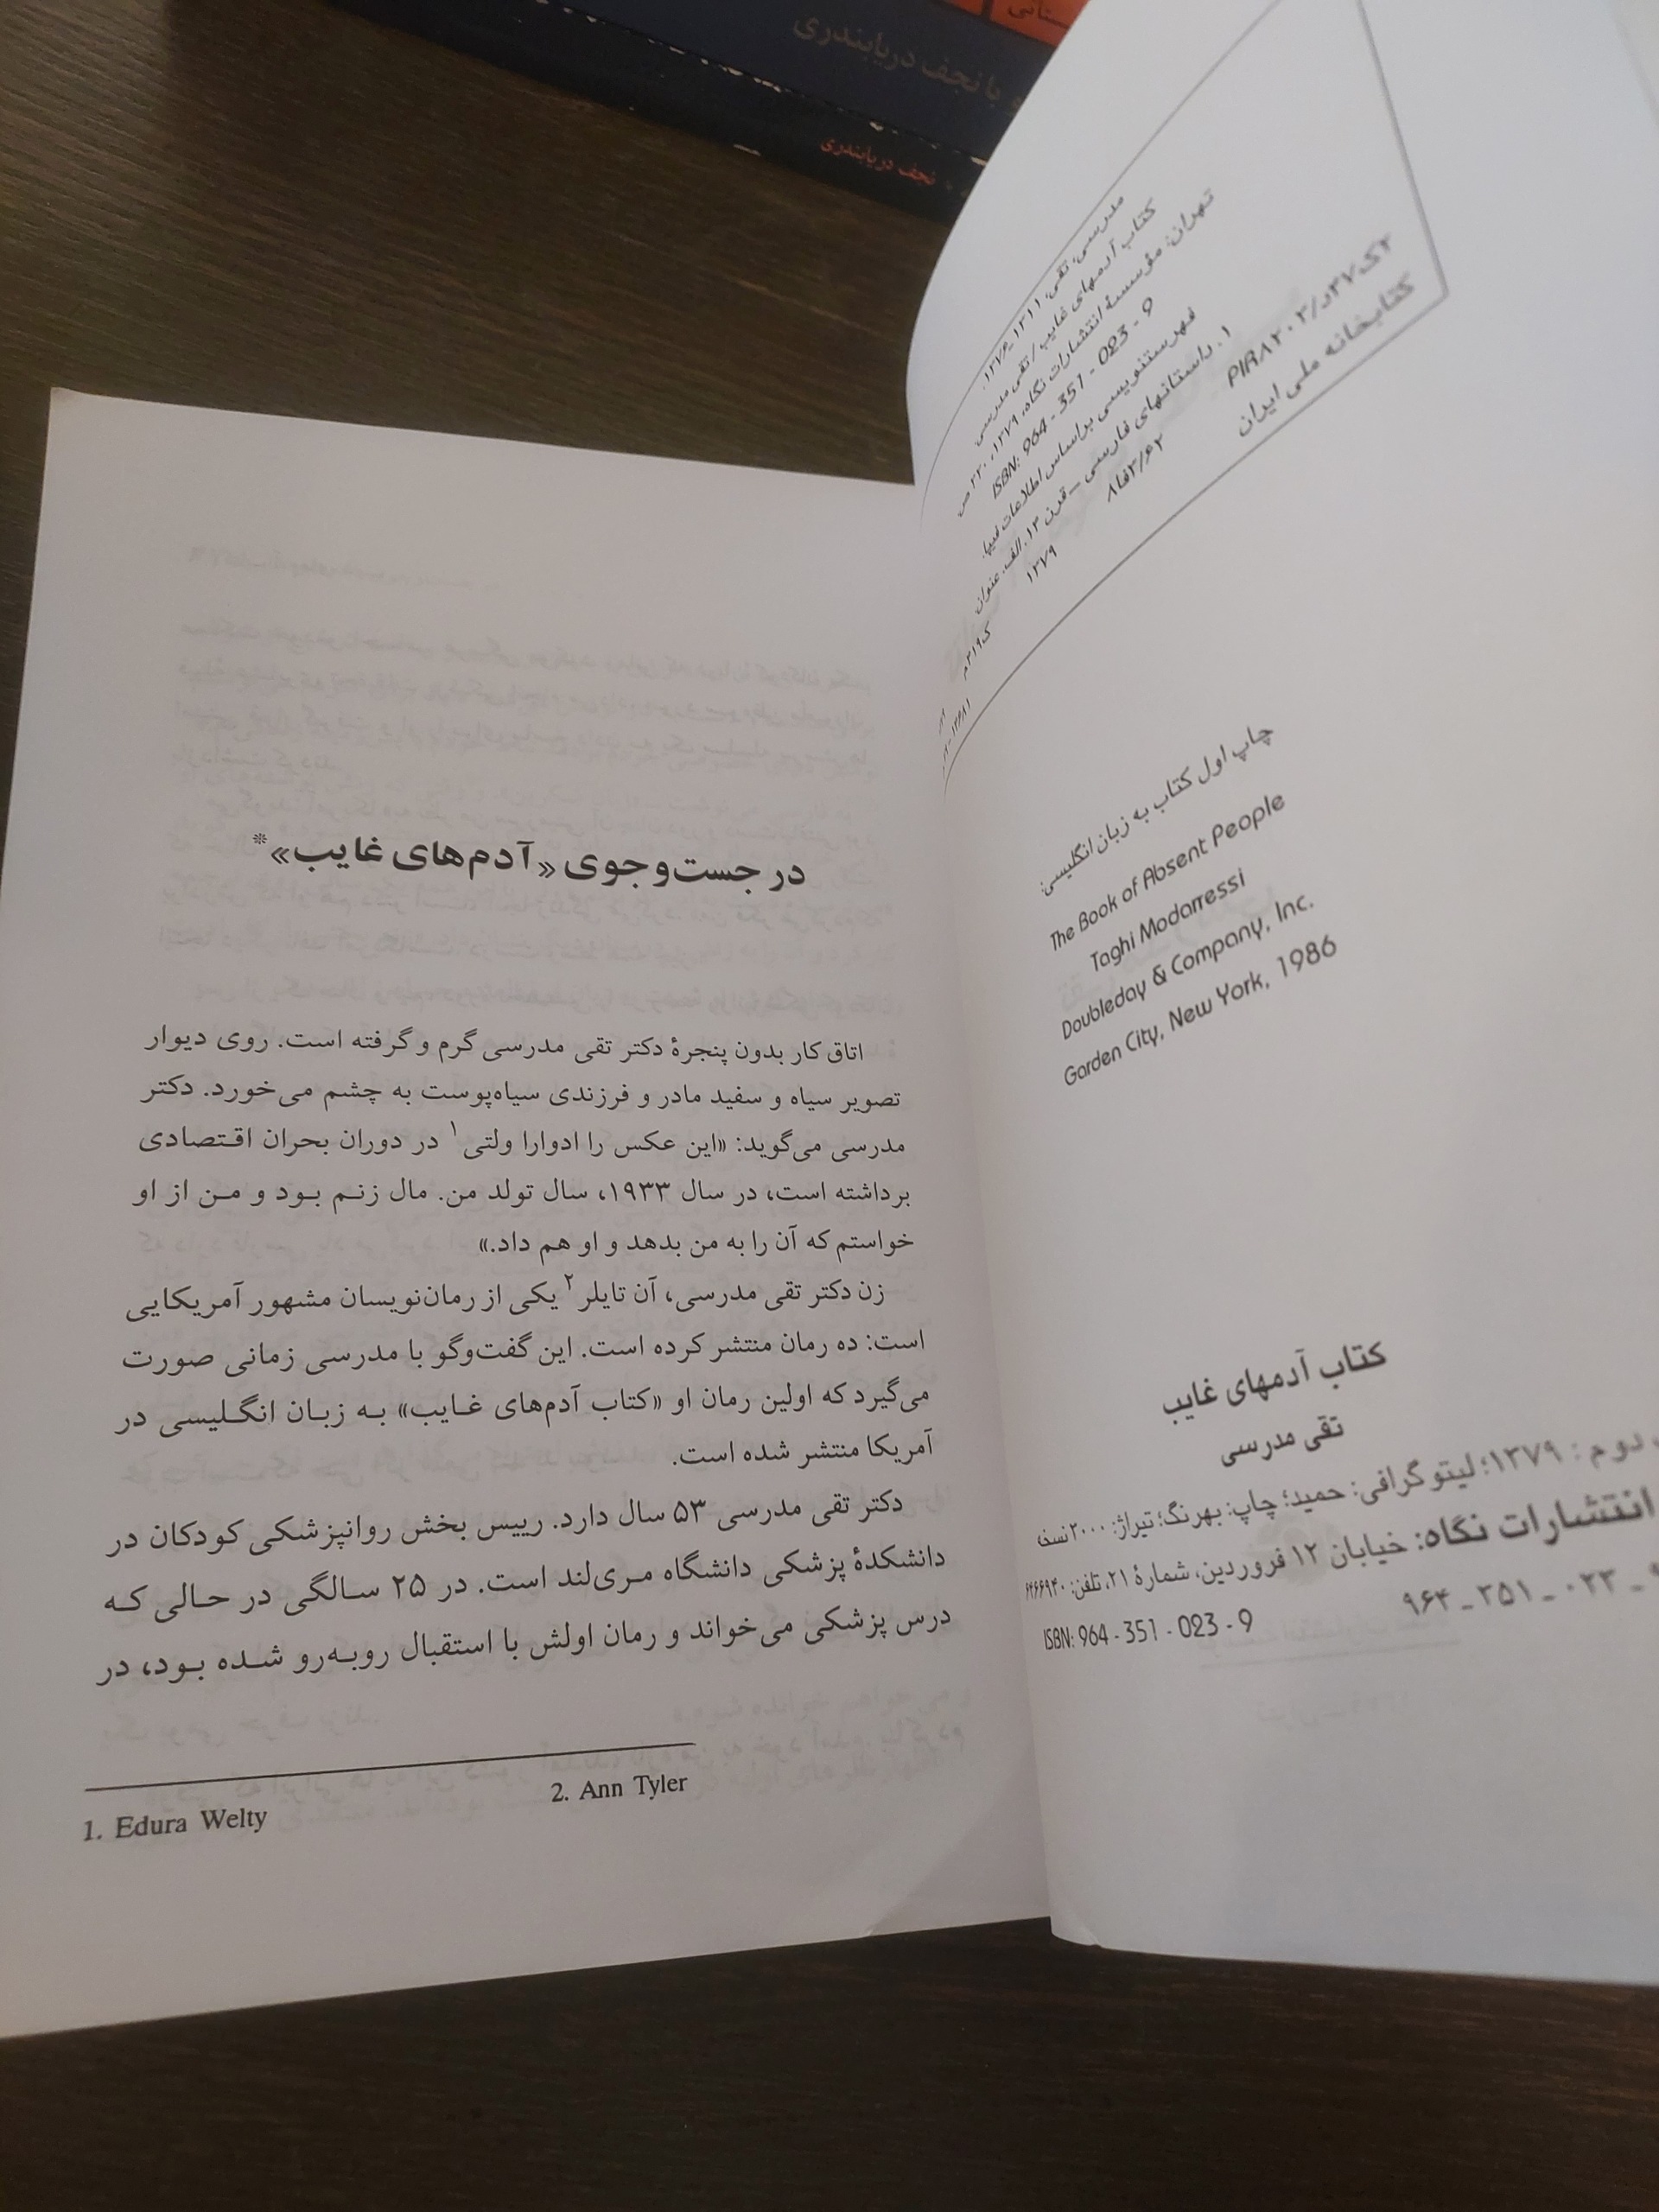 ستانی
با نجف دریابندری
نجف دریابندری
مدرسی، تقی، ۱۳۱۱ _ ۱۳۷۶.
کتاب آدمهای غایب / تقی مدرسی
تهران: مؤسسهٔ انتشارات نگاه، ۱۳۷۹، ۲۲۰ ص
ISBN: 964 - 351 - 023 - 9
فهرستنویسی براساس اطلاعات فیپا.
۱. داستانهای فارسی _ قرن ۱۴. الف. عنوان.
۲ک۴۷د/PIR۸۲۰۳
۸فا۳/۶۲
۱۳۷۹
ک۲۱۹م
کتابخانه ملی ایران
چاپ اول کتاب به زبان انگلیسی:
The Book of Absent People
Taghi Modarressi
Doubleday & Company, Inc.
Garden City, New York, 1986
کتاب آدمهای غایب
تقی مدرسی
دوم : ۱۳۷۹؛ لیتوگرافی: حمید؛ چاپ: بهرنگ؛ تیراژ: ۲۰۰۰ نسخه
انتشارات نگاه: خیابان ۱۲ فروردین، شمارهٔ ۲۱، تلفن: ۶۴۶۶۹۴۰
۹ _ ۰۲۳ _ ۳۵۱ _ ۹۶۴
ISBN: 964 - 351 - 023 - 9
در جست‌وجوی «آدم‌های غایب»*
اتاق کار بدون پنجرهٔ دکتر تقی مدرسی گرم و گرفته است. روی دیوار
تصویر سیاه و سفید مادر و فرزندی سیاه‌پوست به چشم می‌خورد. دکتر
مدرسی می‌گوید: «این عکس را ادوارا ولتی۱ در دوران بحران اقتصادی
برداشته است، در سال ۱۹۳۳، سال تولد من. مال زنم بود و من از او
خواستم که آن را به من بدهد و او هم داد.»
زن دکتر تقی مدرسی، آن تایلر۲ یکی از رمان‌نویسان مشهور آمریکایی
است: ده رمان منتشر کرده است. این گفت‌وگو با مدرسی زمانی صورت
می‌گیرد که اولین رمان او «کتاب آدم‌های غایب» به زبان انگلیسی در
آمریکا منتشر شده است.
دکتر تقی مدرسی ۵۳ سال دارد. رییس بخش روانپزشکی کودکان در
دانشکدهٔ پزشکی دانشگاه مری‌لند است. در ۲۵ سالگی در حالی که
درس پزشکی می‌خواند و رمان اولش با استقبال روبه‌رو شده بود، در
1. Edura Welty
2. Ann Tyler